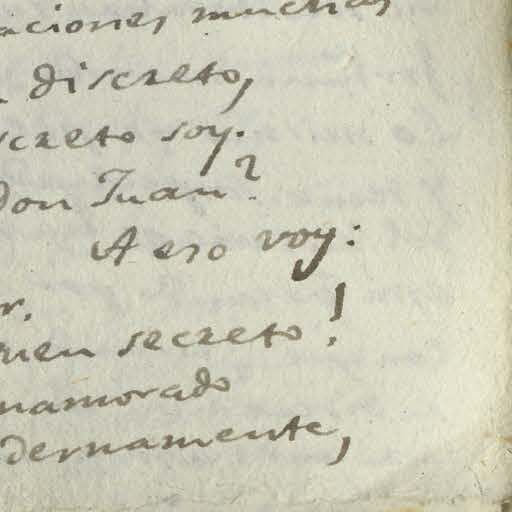 aciones muchas
discreto,
screto soy.
Don Juan?
A eso voy:
r.
uen secreto!
namorado
dernamente,